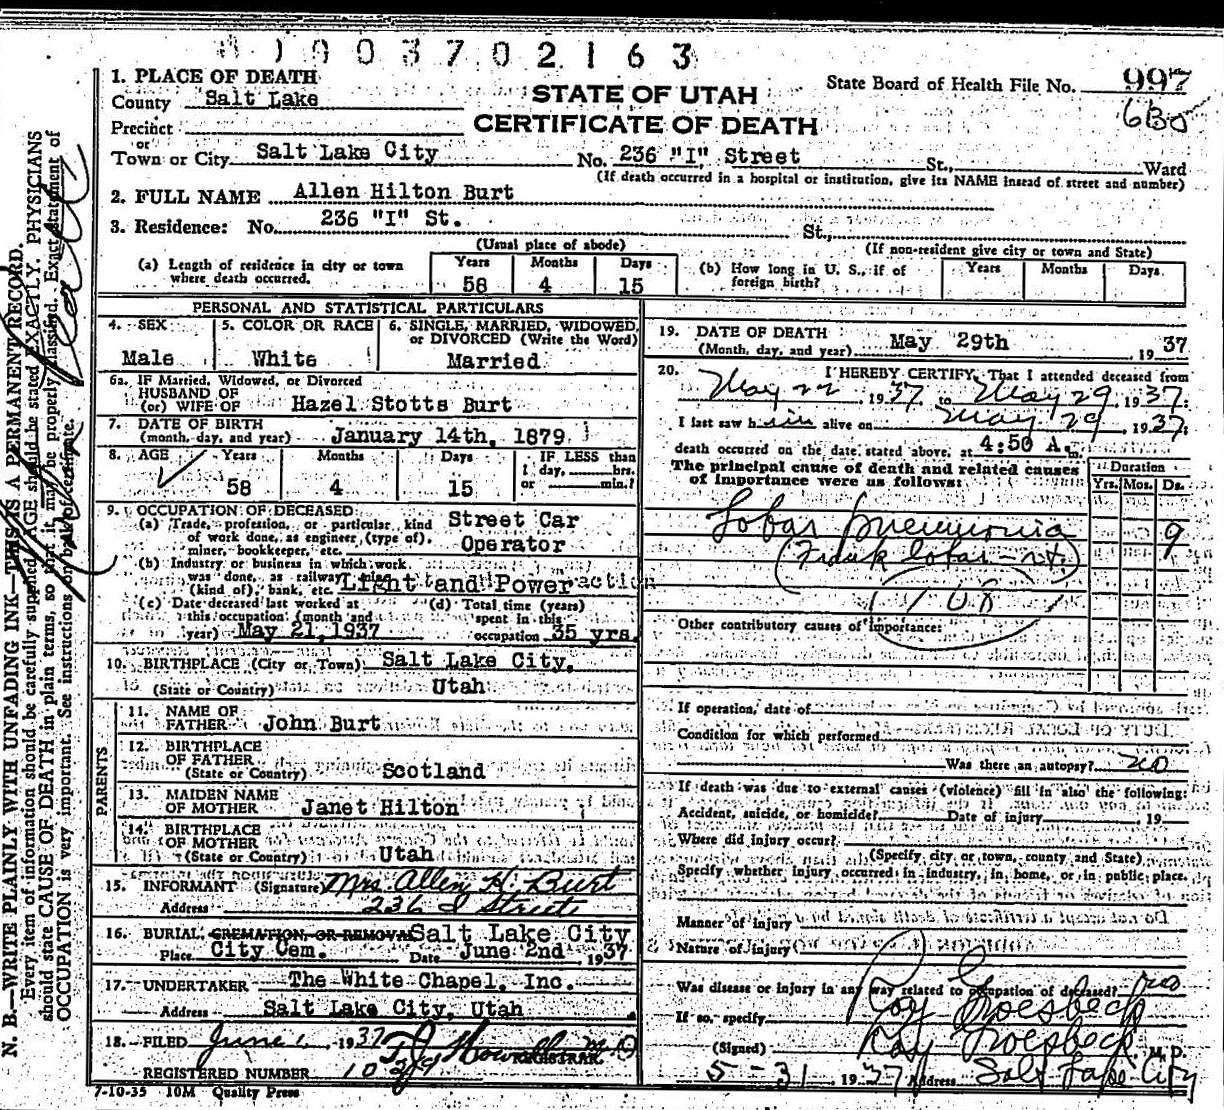 1003702163
1. PLACE OF DEATH
County Salt Lake
STATE OF UTAH
State Board of Health File No. 997
Precinct
CERTIFICATE OF DEATH
or
Town or City Salt Lake City No. 236 "I" Street St., Ward
(If death occurred in a hospital or institution, give its NAME instead of street and number)
2. FULL NAME Allen Hilton Burt
3. Residence: No. 236 "I" St. St.,
(Usual place of abode) (If non-resident give city or town and State)
(a) Length of residence in city or town where death occurred. Years 58 Months 4 Days 15
(b) How long in U. S., if of foreign birth? Years Months Days
PERSONAL AND STATISTICAL PARTICULARS
4. SEX Male
5. COLOR OR RACE White
6. SINGLE, MARRIED, WIDOWED, or DIVORCED (Write the Word) Married
6a. IF Married, Widowed, or Divorced
HUSBAND OF
(or) WIFE OF Hazel Stotts Burt
7. DATE OF BIRTH
(month, day, and year) January 14th, 1879
8. AGE Years 58 Months 4 Days 15 IF LESS than 1 day, hrs. or min.?
9. OCCUPATION OF DECEASED
(a) Trade, profession, or particular kind of work done, as engineer, (type of), miner, bookkeeper, etc. Street Car Operator
(b) Industry or business in which work was done, as railway (kind of), bank, etc. Light and Power
(c) Date deceased last worked at this occupation (month and year) May 21, 1937
(d) Total time (years) spent in this occupation 35 yrs.
10. BIRTHPLACE (City or Town) Salt Lake City,
(State or Country) Utah
PARENTS
11. NAME OF FATHER John Burt
12. BIRTHPLACE OF FATHER (State or Country) Scotland
13. MAIDEN NAME OF MOTHER Janet Hilton
14. BIRTHPLACE OF MOTHER (State or Country) Utah
15. INFORMANT (Signature) Mrs Allen H. Burt
Address 236 I Street
16. BURIAL, CREMATION, OR REMOVAL Salt Lake City
Place City Cem. Date June 2nd 1937
17. UNDERTAKER The White Chapel, Inc.
Address Salt Lake City, Utah
18. FILED June 1 1937 REGISTRAR
REGISTERED NUMBER
7-10-35 10M Quality Press
19. DATE OF DEATH
(Month, day, and year) May 29th, 1937
20. I HEREBY CERTIFY, That I attended deceased from
May 22 1937, to May 29, 1937;
I last saw him alive on May 29, 1937;
death occurred on the date stated above, at 4:50 A m.
The principal cause of death and related causes of importance were as follows:
Duration
Yrs. Mos. Ds.
Lobar pneumonia 9
108
Other contributory causes of importance:
If operation, date of
Condition for which performed
Was there an autopsy? no
If death was due to external causes (violence) fill in also the following:
Accident, suicide, or homicide? Date of injury 19
Where did injury occur?
(Specify city or town, county and State)
Specify whether injury occurred in industry, in home, or in public place.
Manner of injury
Nature of injury
Was disease or injury in any way related to occupation of deceased? no
If so, specify Ray Groesbeck
(Signed) Ray Groesbeck, M. D.
5-31, 1937 Address Salt Lake City
N. B.—WRITE PLAINLY WITH UNFADING INK—THIS IS A PERMANENT RECORD.
Every item of information should be carefully supplied. AGE should be stated EXACTLY. PHYSICIANS
should state CAUSE OF DEATH in plain terms, so that it may be properly classified. Exact statement of
OCCUPATION is very important. See instructions on back of certificate.